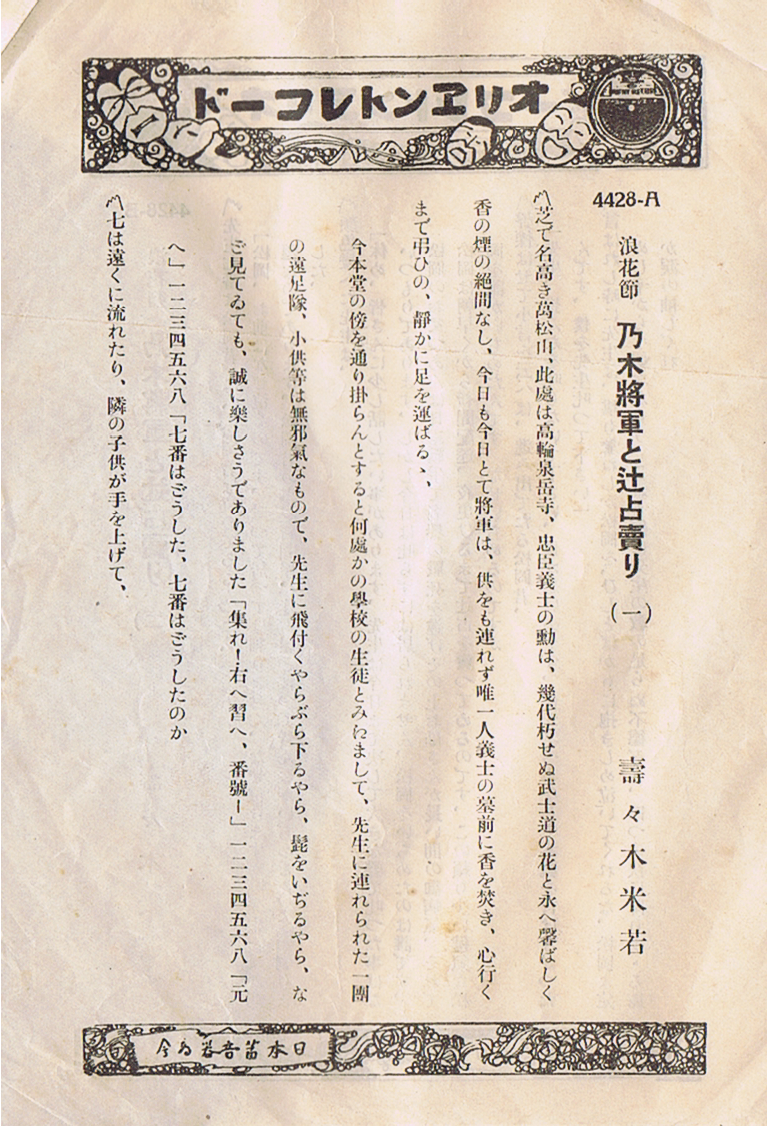 オリヱントレコード
4428-A
浪花節 乃木將軍と辻占賣り (一) 壽々木米若
〽芝で名高き萬松山、此處は高輪泉岳寺、忠臣義士の勳は、幾代朽せぬ武士道の花と永へ馨ばしく
香の煙の絶間なし、今日も今日とて將軍は、供をも連れず唯一人義士の墓前に香を焚き、心行く
まで弔ひの、靜かに足を運ばるゝ、
今本堂の傍を通り掛らんとすると何處かの學校の生徒とみねまして、先生に連れられた一團
の遠足隊、小供等は無邪氣なもので、先生に飛付くやらぶら下るやら、髭をいぢるやら、な
ご見てゐても、誠に樂しさうでありました「集れ!右へ習へ、番號ー」一二三四五六八「元
へ」一二三四五六八「七番はごうした、七番はごうしたのか
〽七は遠くに流れたり、隣の子供が手を上げて、
日本蓄音器商会